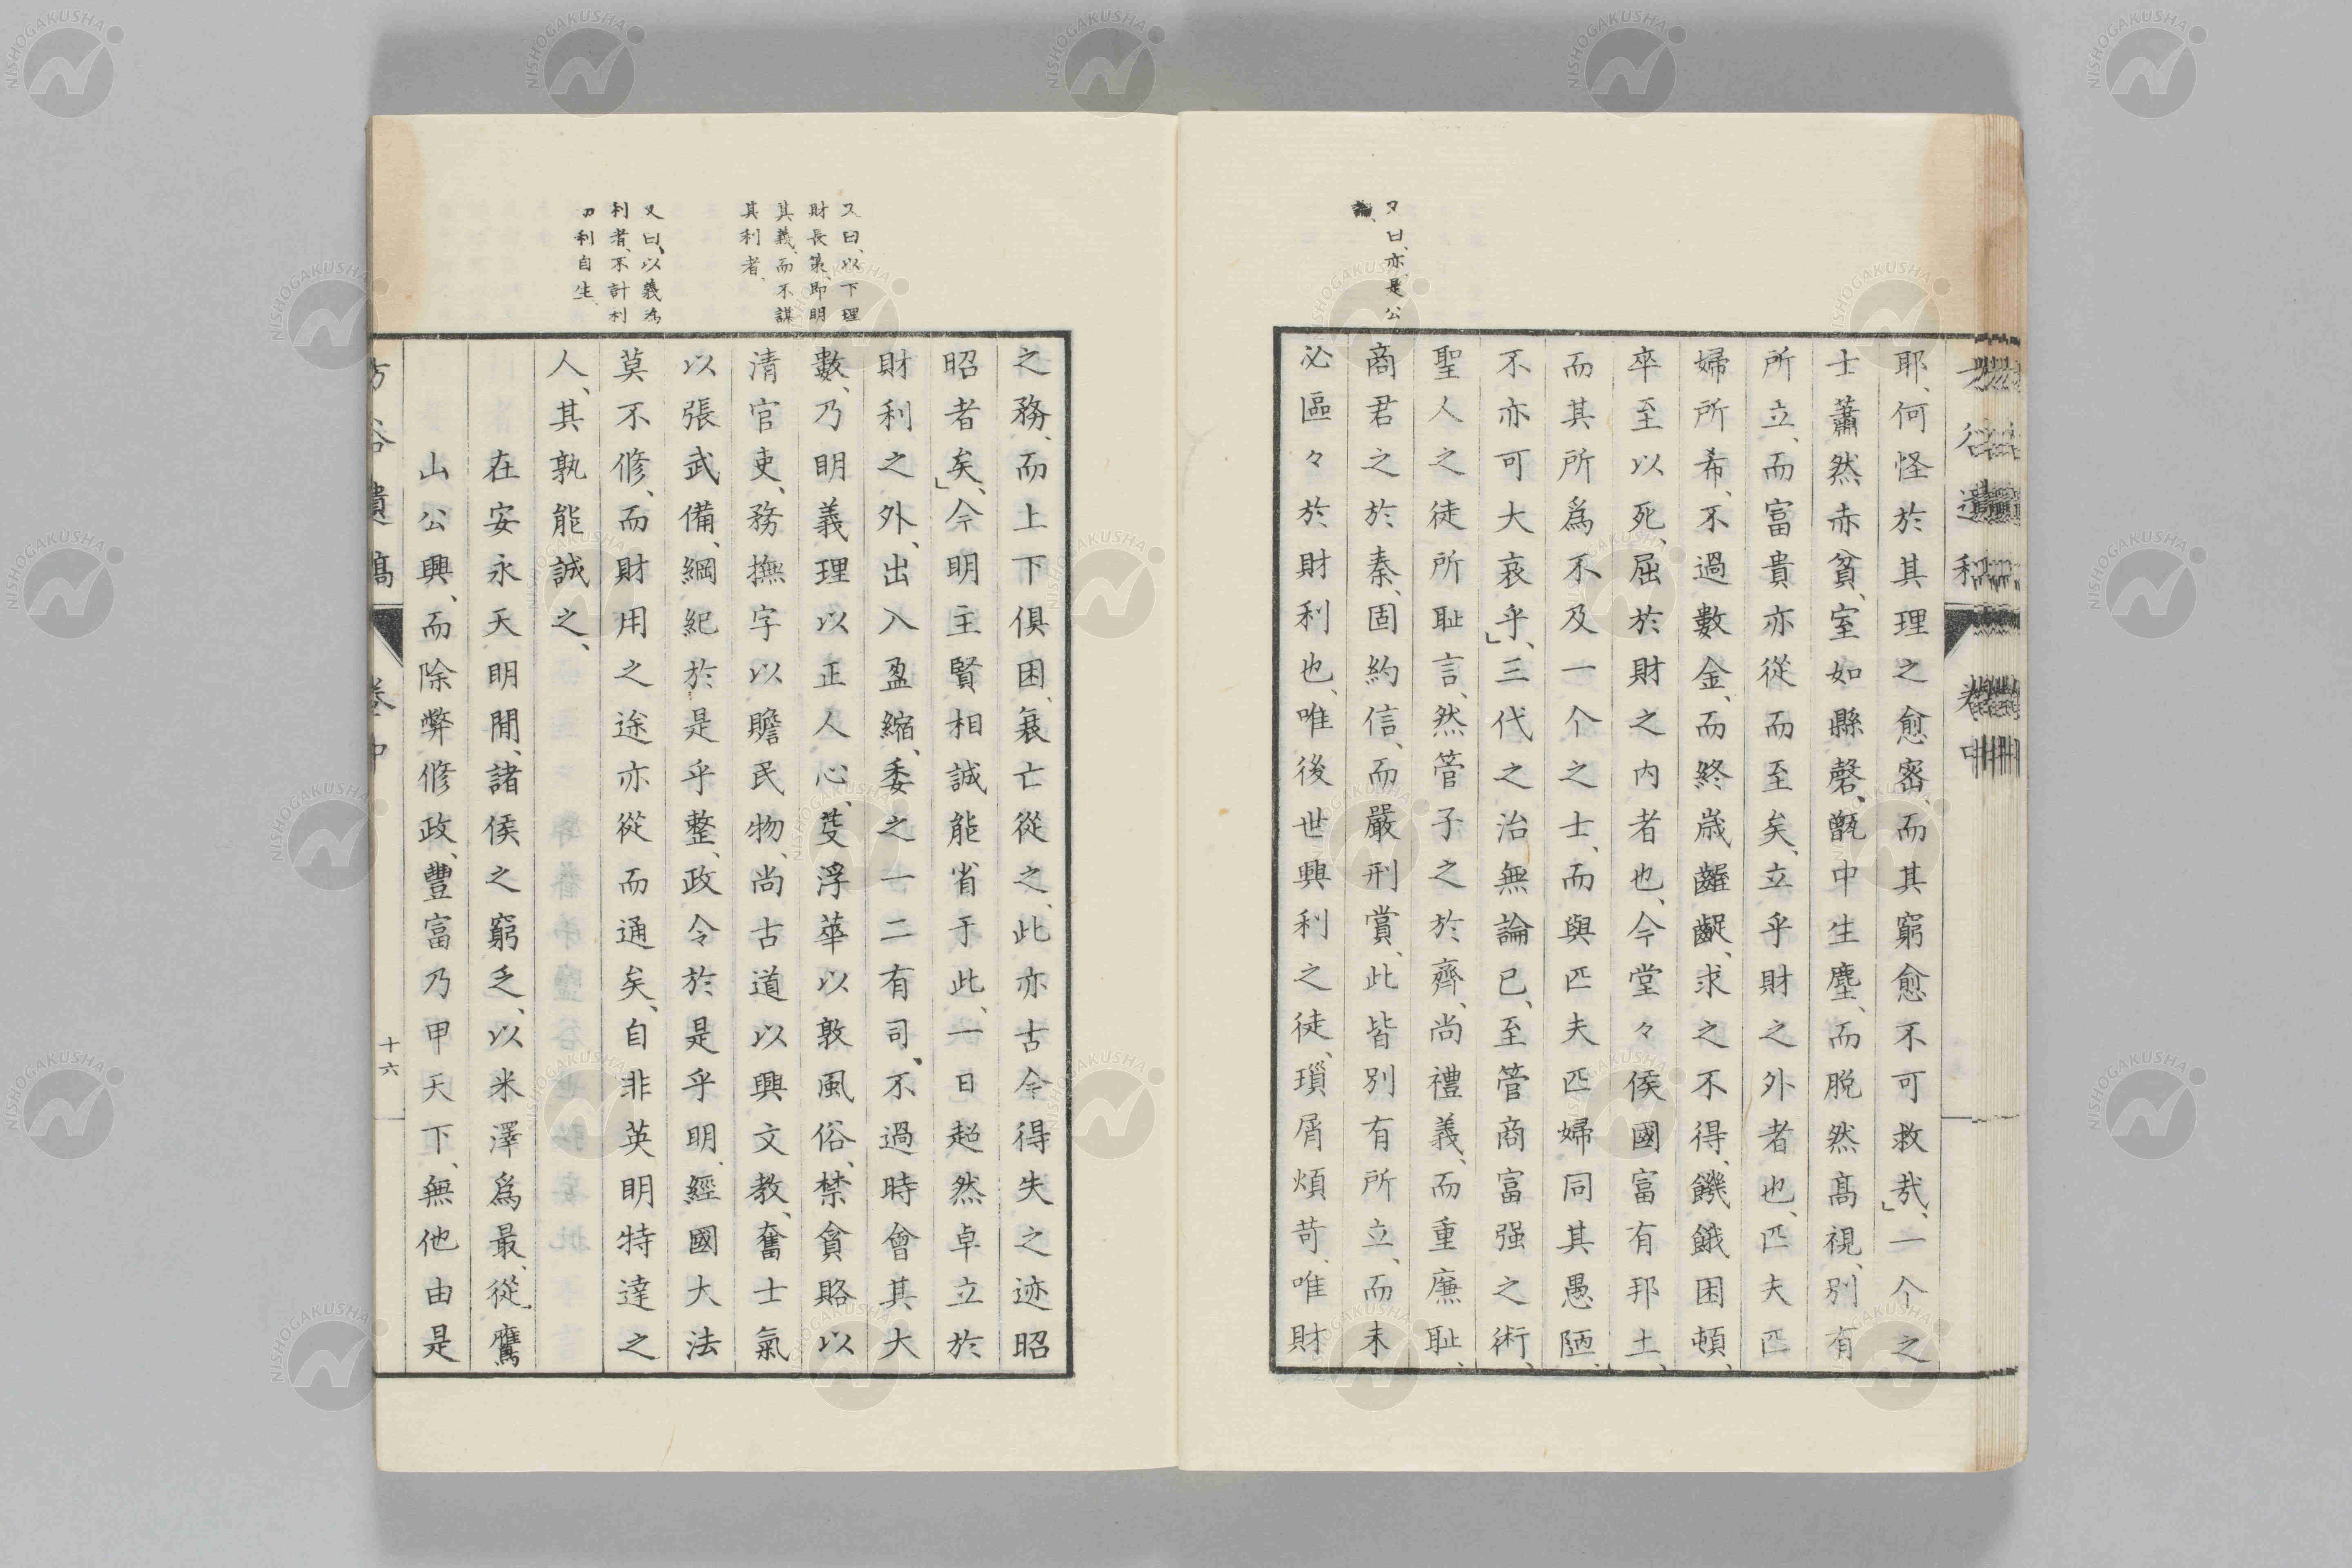 又曰、亦是公
論、
耶、何怪於其理之愈密、而其窮愈不可救哉」、一个之
士蕭然赤貧、室如縣磬、甑中生塵、而脫然高視、別有
所立、而富貴亦從而至矣、立乎財之外者也、匹夫匹
婦所希、不過數金、而終歲齷齪、求之不得、饑餓困頓、
卒至以死、屈於財之內者也、今堂々侯國富有邦土、
而其所爲不及一个之士、而與匹夫匹婦同其愚陋、
不亦可大哀乎」、三代之治無論已、至管商富强之術、
聖人之徒所耻言、然管子之於齊、尚禮義、而重廉耻、
商君之於秦、固約信、而嚴刑賞、此皆別有所立、而未
必區々於財利也、唯後世興利之徒、瑣屑煩苛、唯財
又曰、以下理
財長策、即明
其義、而不謀
其利者、
又曰、以義為
利者、不計利
刀利自生、
之務、而上下俱困、衰亡從之、此亦古今得失之迹昭
昭者矣」、今明主賢相誠能省于此、一日超然卓立於
財利之外、出入盈縮、委之一二有司、不過時會其大
數、乃明義理以正人心、芟浮華以敦風俗、禁貪賂以
清官吏、務撫字以贍民物、尚古道以興文教、奮士氣
以張武備、綱紀於是乎整、政令於是乎明、經國大法
莫不修、而財用之途亦從而通矣、自非英明特達之
人、其孰能誠之、
在安永天明間、諸侯之窮乏、以米澤爲最、從鷹
山公興、而除弊修政、豐富乃甲天下、無他由是
方谷遺稿
卷中
十六